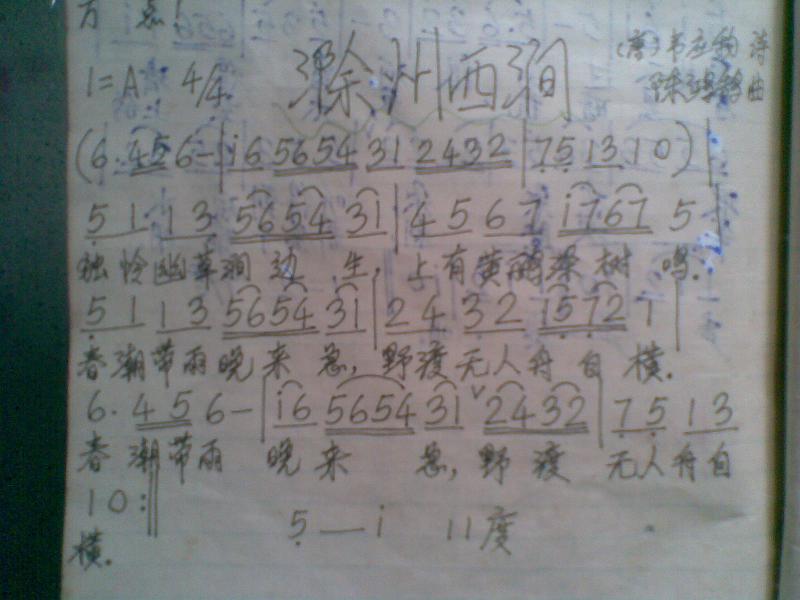 1=A 4/4 滁州西涧 (唐)韦应物 诗
曲
(6· 456-|i6 5654 31 2432|75 13 10)|
51 13 5654 31|45 67 i767 5|
独怜幽草涧边 生,上有黄鹂深树 鸣.
51 13 5654 31|24 32 i572 1|
春潮带雨晚来 急,野渡无人舟自 横.
6· 456-|i6 5654 31 ∨ 2432|75 13
春 潮带雨 晚来 急,野 渡 无人舟自
10:‖
5—i 11度
横.